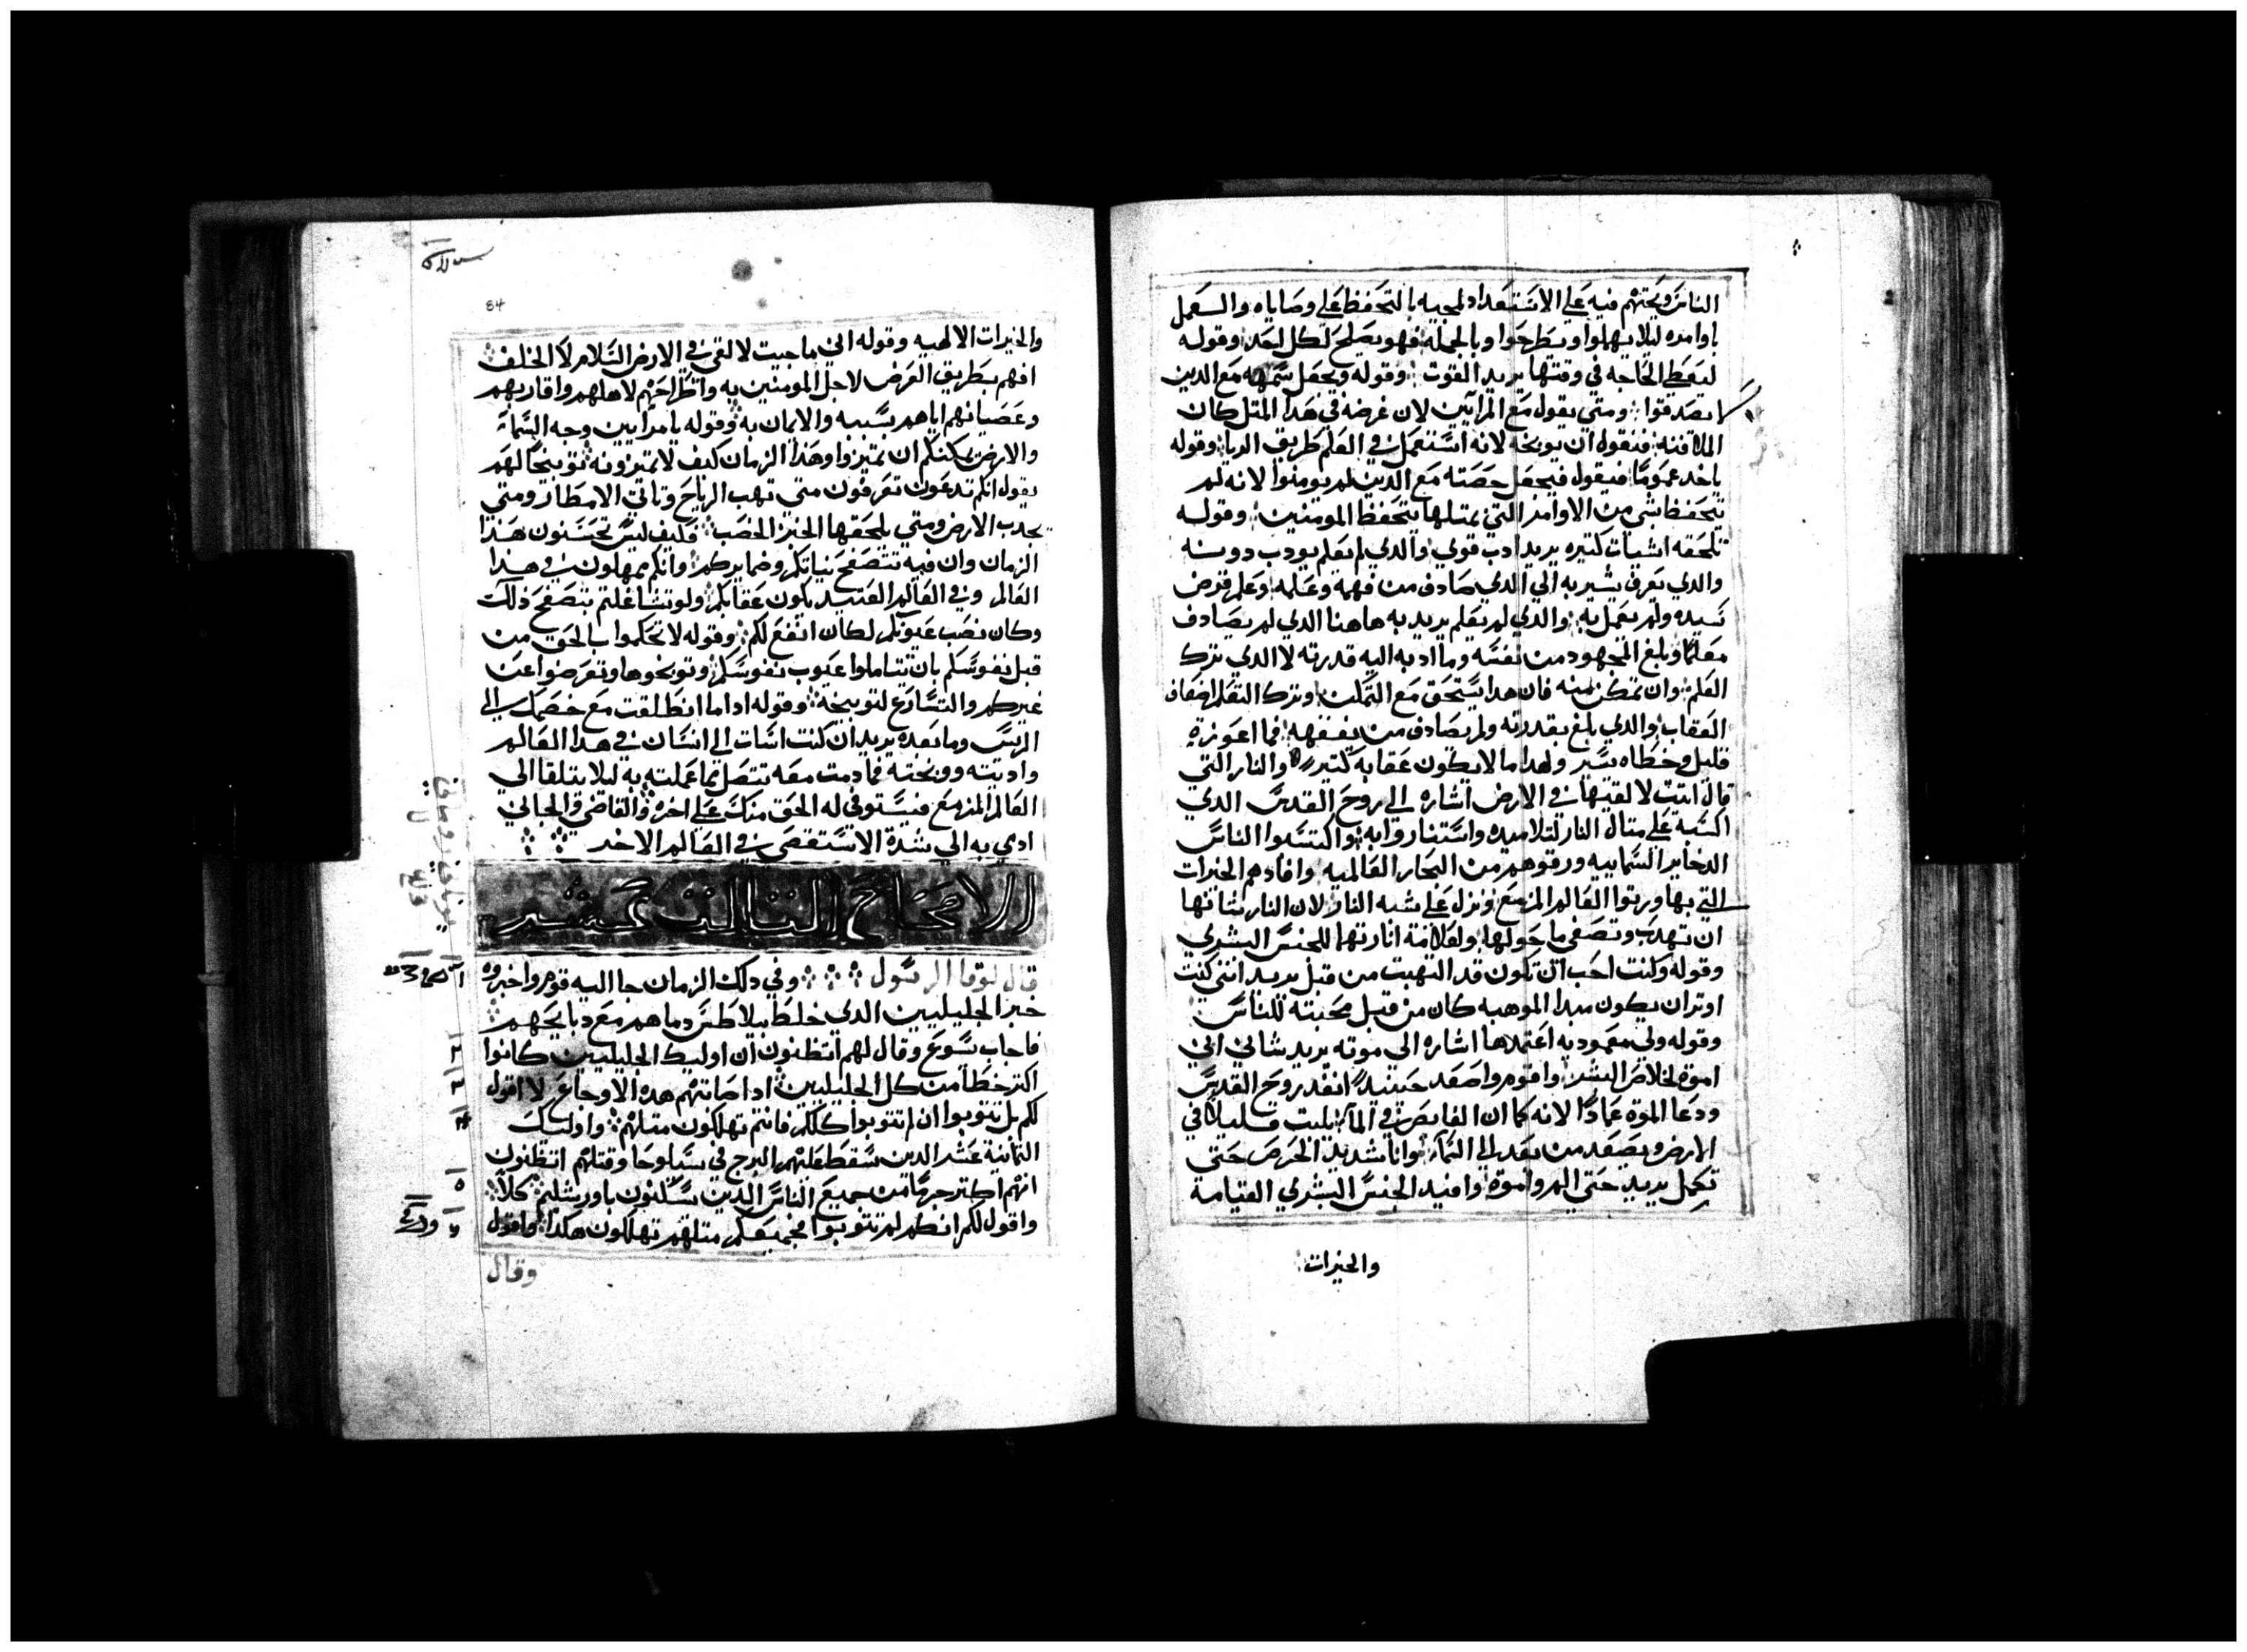 الناس ويحتهم فيه على الاستعداد لمجيه بالتحفظ على وصاياه والعمل
باوامره ليلا يهلوا ويطرحوا وبالجمله فهو يصلح لكل احد وقوله
ليعطي الحاجه في وقتها يريد القوت وقوله ويجعل سهمه مع الدين
لم يصدقوا ومتي يقول مع المرآيين لان غرضه في هدا المتل كان
فنقول ان يوبخه لانه استعمل في العلم طريق الريا وقوله
ياخد عموما فيقول فيجعل حصته مع الدين لم يومنوا لانه لم
يتحفظ بشي من الاوامر التي بمتلها يتحفظ المومنين وقوله
تلحقه اشيات كتيره يريد ادب قوي والدي لم يعلم يودب دونه
والدي يعرف يشير به الي الدي صادف من فهمه وعلمه وعلم غرض
سيده ولم يعمل به والدي لم يعلم يريد به هاهنا الدي لم يصادف
معلما وبلغ المجهود من نفسه وما ادته اليه قدرته لا الدي ترك
العلم وان تمكن منه فان هدا يستحق مع التمكن وترك التعلم اضعاف
العقاب والدي بلغ بقدرته ولم يصادف من يفقهه فما اعوزه
قليل وخطاه يسير ولهدا ما لا يكون عقابه كتير والنار التي
قال اتيت لالقيها في الارض اشاره الى روح القدس الدي
اكسبه على متال النار لتلاميده واستناروا به واكتسبوا الناس
الدخاير السماييه ورقوهم من البحار العالميه وافادهم الخيرات
التي بها ورتوا العالم المزمع ونزل على شبه النار لان النار شانها
ان تهدب وتصفي ما حولها ولعلامة انارتها للجنس البشري
وقوله وكنت احب ان تكون قد التهبت من قبل يريد انني كنت
اوتر ان يكون مبدا الموهبه كان من قبل محبته للناس
وقوله ولي معموديه اعتمدها اشاره الي موته يريد شاني اني
اموة لخلاص البشر واقوم واصعد حينيد انفد روح القدس
ودعا الموة عمادا لانه كما ان الغايص في المآ يلبت قليلا في
الارض ويصعد من بعد الى السمآ وانا شديد الحرص حتى
تكمل يريد حتى الم واموة وافيد الجنس البشري القيامة
والخيرات
84
والخيرات الالهيه وقوله اني ما جيت لالقي في الارض السلام لاكن الخلف
افهم بطريق العرض لاجل المومنين به واطراحهم لاهلهم واقاربهم
وعصيانهم اياهم بسببه والايمان به وقوله يا مرآيين وجه السمآ
والارض يمكنكم ان تميزوا وهدا الزمان كيف لا تميزونه توبيخا لهم
يقول انكم تدعون تعرفون متى تهب الرياح وتاتي الامطار ومتي
يجدب الارض ومتي يلحقها الخير الخصب فكيف ليس تحسنون هدا
الزمان وان فيه تتصفح نياتكم وضمايركم وانكم تمهلون في هدا
العالم وفي العالم العتيد يكون عقابكم ولو تشاغلتم بتصفح ذلك
وكان نصب عيونكم لكان انفع لكم وقوله لا تحكموا بالحق من
قبل نفوسكم بان تتاملوا عيوب نفوسكم وتوبخوها وتعرضوا عن
غيركم والتسارع لتوبيخه وقوله اداما انطلقت مع خصمك الى
الريس وما بعده يريد ان كنت اسات الى انسان في هدا العالم
واديته ووبخته فما دمت معه تتصل مما عملته به ليلا يتلقا الي
العالم المزمع فيستوفي له الحق منك على اخره والقاضي والجاني
ادي به الي شدة الاستقصى في العالم الاخر
الاصحاح التالت عشر
قال لوقا الرسول وفي دلك الزمان جا اليه قوم واخبروه
خبر الجليليين الدي خلط بيلاطس دماهم مع دبايحهم
فاجاب يسوع وقال لهم اتظنون ان اوليك الجليليين كانوا
اكتر خطا من كل الجليليين ادا صابتهم هده الاوجاع لا اقول
لكم بل تتوبوا ان لم تتوبوا كلكم فانتم تهلكون متلهم واوليك
التمانية عشر الدين سقط عليهم البرج في سيلوحا وقتلهم اتظنون
انهم اكتر جرما من جميع الناس الدين يسكنون باورشليم كلا
واقول لكم انكم لم تتوبوا فجميعكم متلهم تهلكون هكدا واقول
وقال